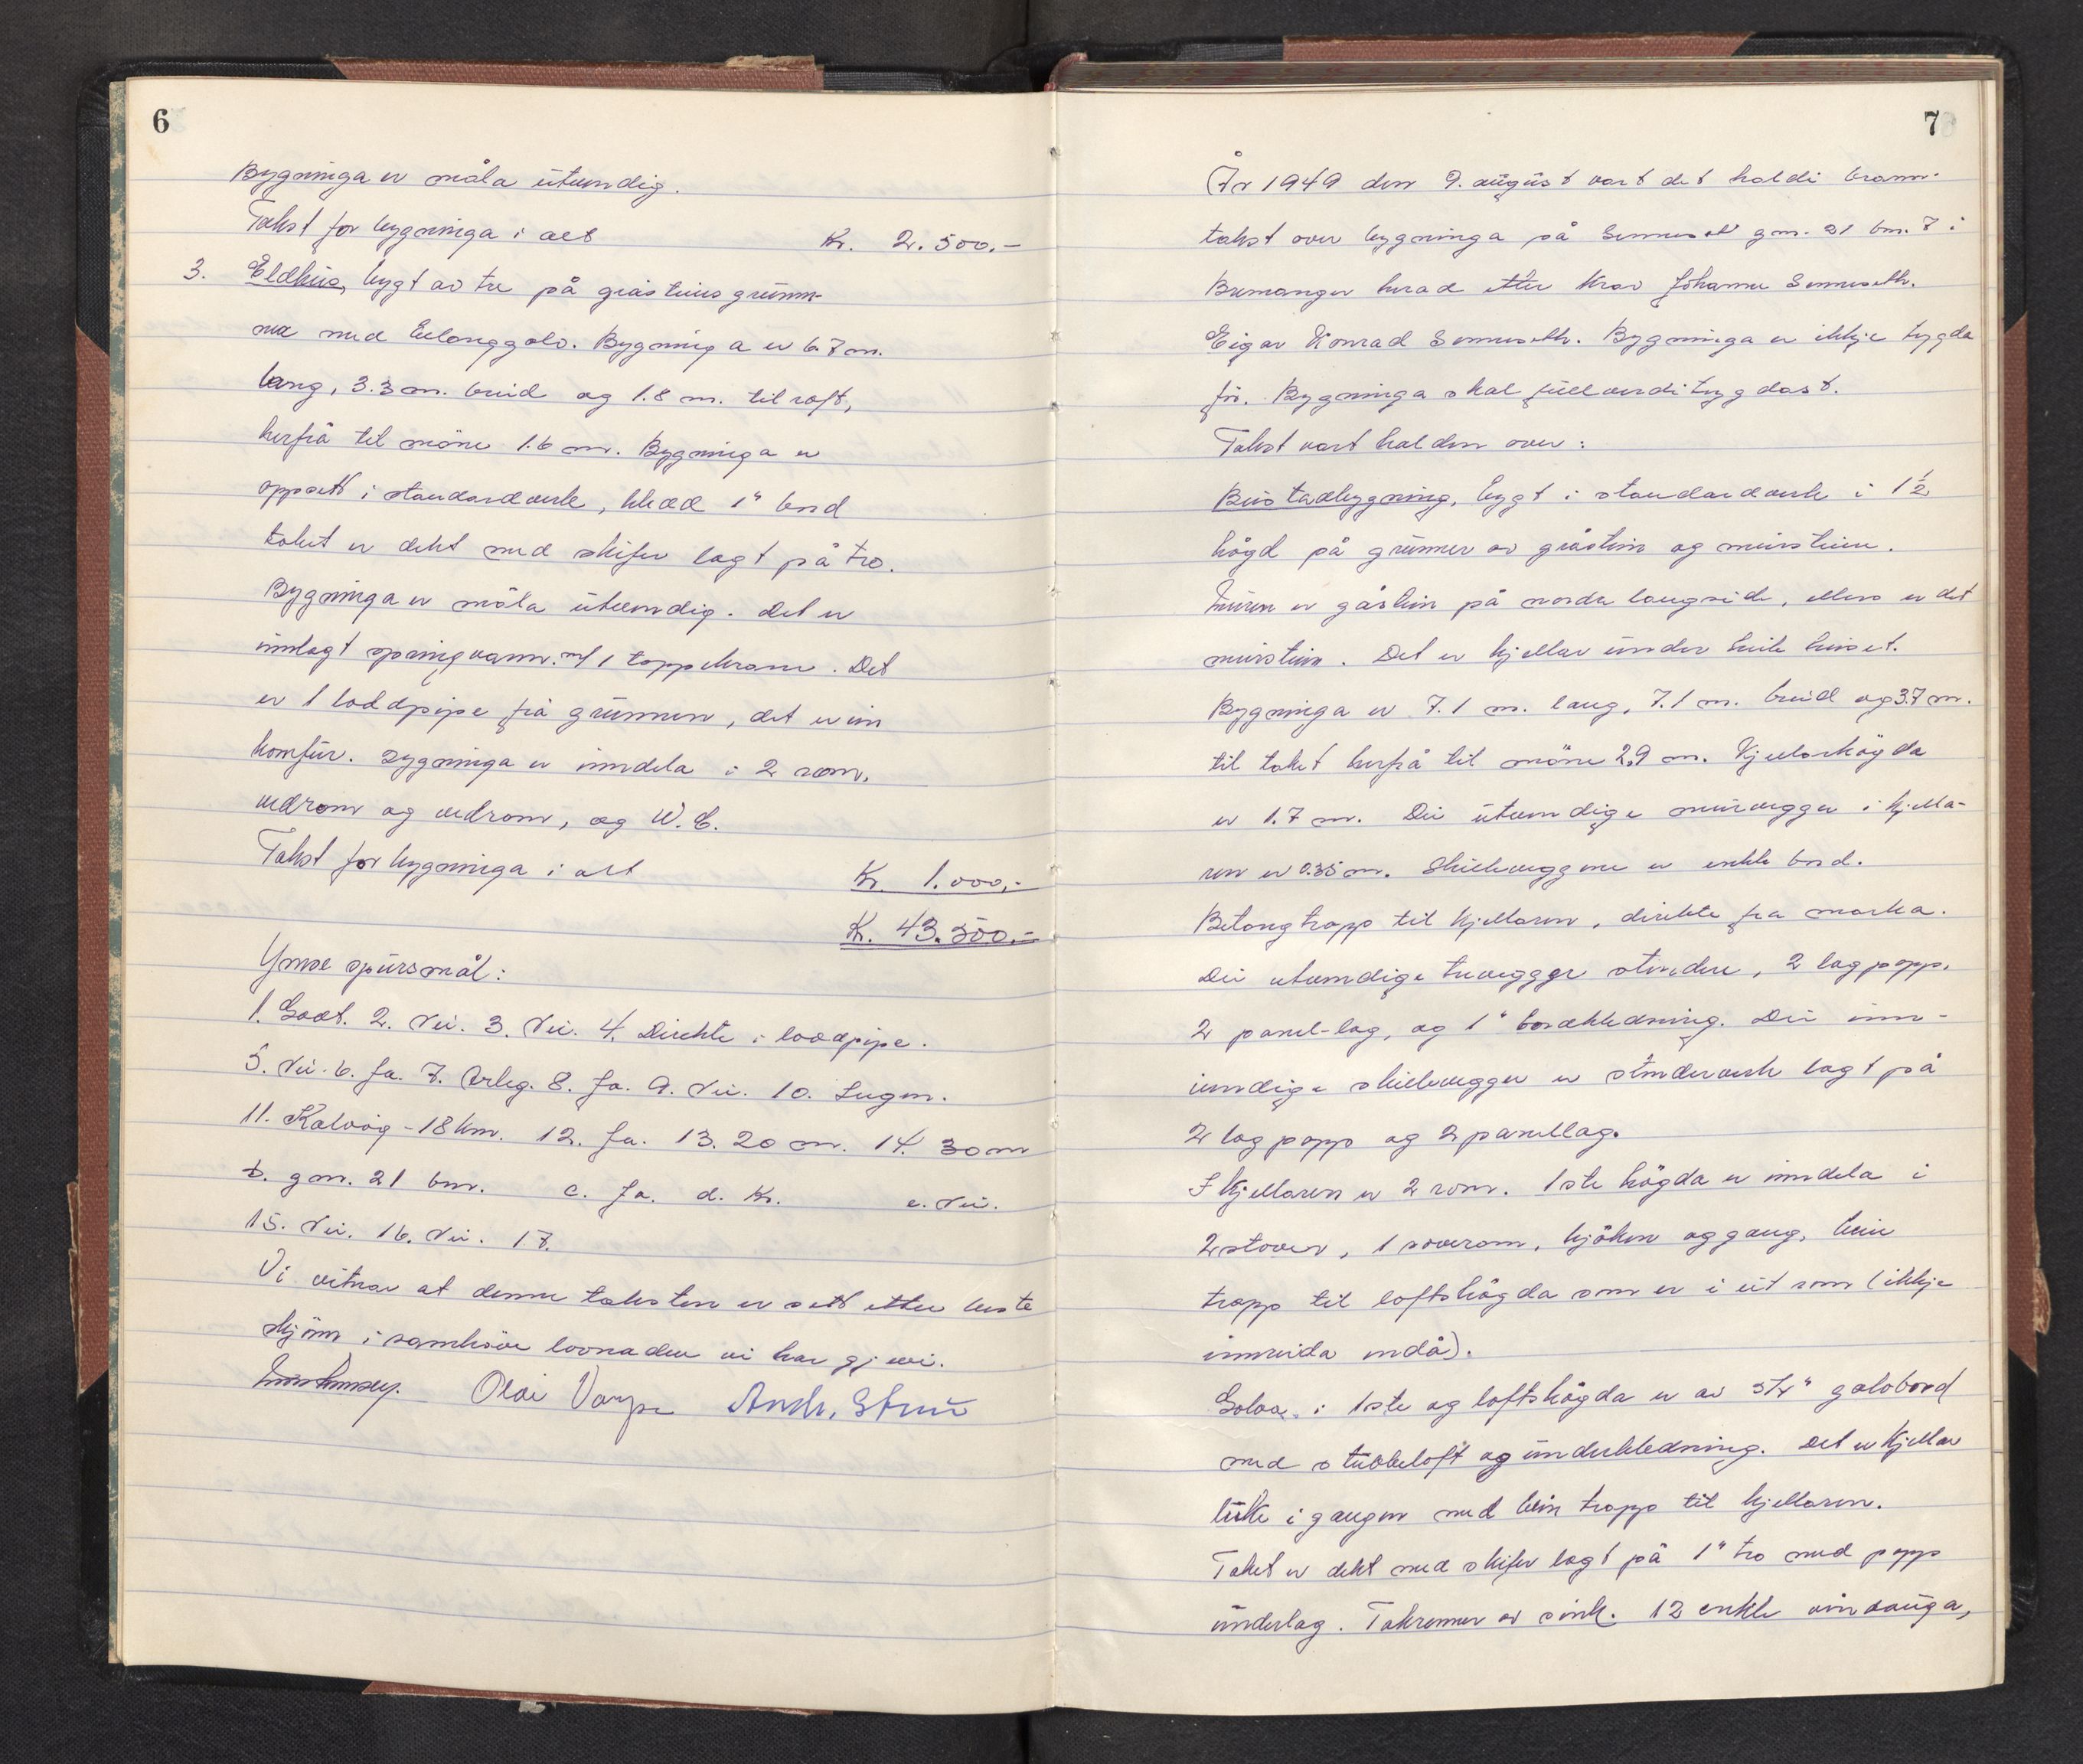 6
Bygninga er måla utvendig.
Takst for bygninga i alt Kr. 2.500.-
3. Eldhus, bygt av tre på gråsteins grunn-
mur med betonggolv. Bygninga er 6.7 m.
lang, 3.3 m. breid og 1.8 m. til raft,
herfrå til møne 1.6 m. Bygninga er
oppsett i standardverk, kledd 1" bord
taket er dekt med skifer lagt på tro.
Bygninga er måla utvendig. Det er
innlagt springvann. m/ 1 toppekrane. Det
er 1 loddpipe frå grunnen, det er ein
komfur. Bygninga er inndela i 2 rom,
vedrom, og W.C.
Takst for bygninga i alt Kr. 1.000,-
Kr. 43.500.-
Ymse spursmål:
1. Godt. 2. Nei. 3. Nei. 4. Direkte i loddpipe.
5. Nei. 6. Ja. 7. Årleg. 8. Ja. 9. Nei. 10. Ingen.
11. Kalvåg - 18 km. 12. Ja. 13. 20 m. 14. 30 m
b. gnr. 21 bnr. c. Ja. d. Kr. e. Nei.
15. Nei. 16. Nei. 17.
Vi vitnar at denne taksten er sett etter beste
skjønn i samhøve lovnaden vi har gjevi.
Olai Varpe Andr. Strus
7
År 1949 den 9. august vart det haldi brann-
takst over bygninga på Senneset gnr. 21 bnr. 7 i
Bremanger herad etter krav Johanne Senneseth.
Eigar Konrad Senneseth. Bygninga er ikkje trygda
før. Bygninga skal fullverditrygdast.
Takst vart halden over:
Bustadbygning, bygt i standardverk i 1 1/2
høgd på grunnur av gråstein og murstein.
Muren er gåstein på nordre langside, elles er det
murstein. Det er kjellar under heile huset.
Bygninga er 7.1 m. lang, 7.1 m. breid og 3.7 m.
til taket herfrå til møne 2,9 m. Kjellarhøgda
er 1.7 m. Dei utvendige murvegger i kjella-
ren er 0.35 m. Skilleveggene er enkle bord.
Betongtrapp til kjellaren, direkte fra marka.
Dei utvendige trevegger stendere, 2 lag papp,
2 panel-lag, og 1" bordkledning. Dei inn-
vendige skillevegger er stenderverk lagt på
2 lag papp og 2 panellag.
I kjellaren er 2 rom. 1ste høgda er inndela i
2 stover, 1 soverom, kjøken og gang, ein
trapp til loftshøgda som er i eit rom (ikkje
innreida endå).
Golva i 1ste og loftshøgda er av 5/4" golvbord
med stubbeloft og underkledning. Det er kjellar
luke i gangen med ein trapp til kjellaren.
Taket er dekt med skifer lagt på 1" tro med papp
underlag. Takrenner av sink. 12 enkle vindauga,